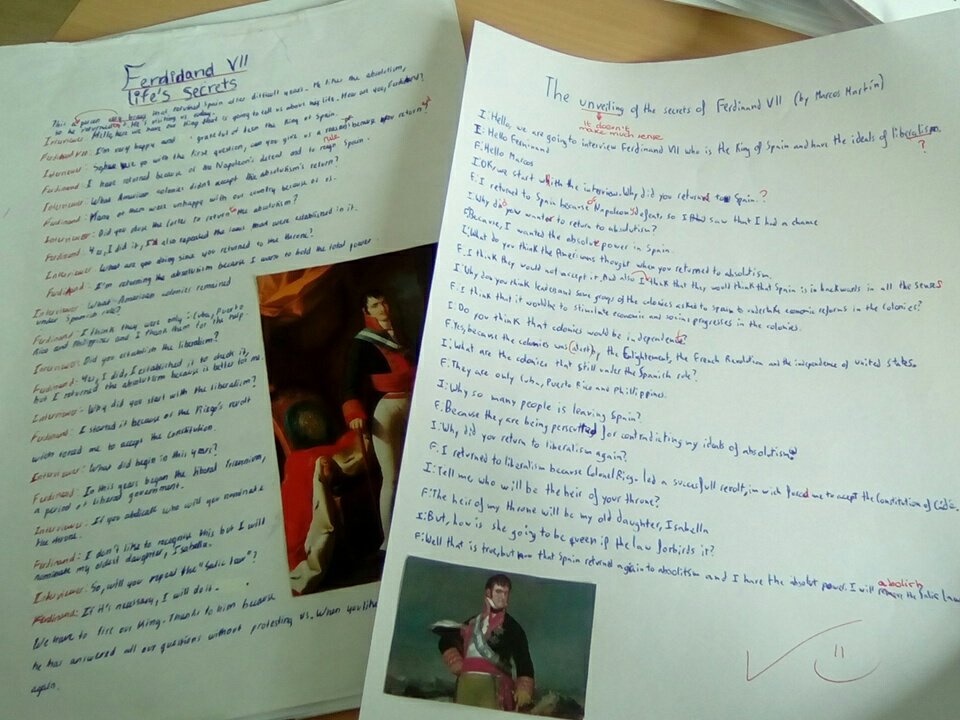 Ferdidand VII
life's Secrets
to be returned. He's visiting us today.
Interviewer: Hello, here we have our king that is going to tell us about his life. How are you, Ferdinand?
Ferdinand VII: I'm very happy and grateful of been the King of Spain.
with the first question, can you give us a reason because you return?
Ferdinand: I have returned because of the Napoleon's defeat and to reign Spain
Interviewer: What American colonies didn't accept the absolutism's return?
Ferdinand: Many of them were unhappy with our country because of us.
Interviewer: Did you close the Cortes to return to the absolutism?
Ferdinand: Yes, I did it, I also repealed the laws that were established in it.
Interviewer: What are you doing since you returned to the throne?
Ferdinand: I'm returning the absolutism because I want to hold the total power.
Interviewer: What American colonies remained
under Spanish rule?
Ferdinand: I think they were only: Cuba, Puerto
Rico and Philippines and I thank them for the help
Interviewer: Did you establish the liberalism?
Ferdinand: Yes, I did, I established it to check it,
but I returned the absolutism because is better for me.
Interviewer: Why did you start with the liberalism?
Ferdinand: I started it because of the Riego's revolt
wich forced me to accept the constitution.
Interviewer: What did begin in this years?
Ferdinand: In this years began the liberal Triennium,
a period of liberal government.
Interviewer: If you abdicate who will you nominate
the throne.
Ferdinand: I don't like to recognise this but I will
nominate my oldest daughter, Isabella.
Interviewer: So, will you repeal the "Salic law"?
Ferdinand: If it's necessary, I will do it.
We have to fire our King. Thanks to him because
he has answered all our questions without protesting us. When you like
again.
The unveiling of the secrets of Ferdinand VII (by Marcos Martín)
it doesn't
make much sense
I: Hello, we are going to interview Ferdinand VII who is the King of Spain and have the ideals of liberalism.
?
I: Hello Ferdinand
F: Hello Marcos
I: OK, we start with the interview. Why did you returned to Spain?
F: I returned to Spain because of Napoleon's defeats so I saw that I had a chance
I: Why did you want to return to absolutism?
F: Because, I wanted the absolute power in Spain.
I: What do you think the Americans thought when you returned to absolutism.
F: I think they would not accept it. And also I think that they would think that Spain is in backwards in all the senses
I: Why do you think leaders and some groups of the colonies asked to Spain to undertake economic reforms in the colonies?
F: I think that it would be to stimulate economic and social progresses in the colonies.
I: Do you think that colonies would be independents?
F: Yes, because the colonies was the Enlightement, the French Revolution and the independence of united states.
I: What are the colonies that still under the Spanish rule?
F: They are only Cuba, Puerto Rico and Philippines.
I: Why so many people is leaving Spain?
F: Because they are being persecuted for contradicting my ideals of absolutism
I: Why did you return to liberalism again?
F: I returned to liberalism because Colonel Riego led a succesfull revolt, im wich forced me to accept the Constitution of Cádiz.
I: Tell me, who will be the heir of your throne?
F: The heir of my throne will be my old daughter, Isabella
I: But, how is she going to be queen if the law forbirds it?
F: Well that is true, but now that Spain returned again to absolitism and I have the absolut power. I will the Salic Law
abolish